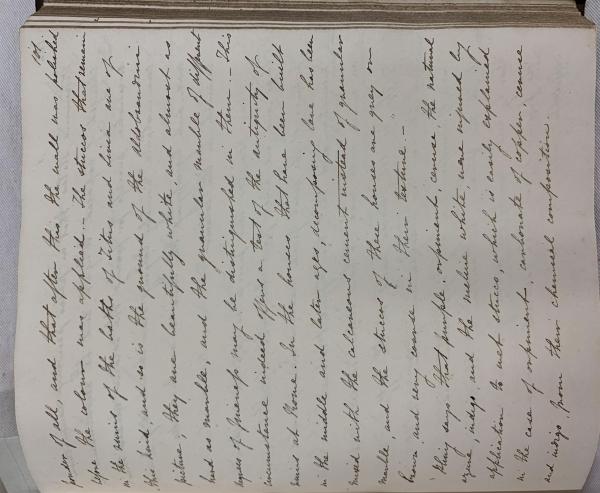 107
powder of all, and that after this the wall was polished
before the colour was applied. — The stuccos that remain
in the ruins of the baths of Titus and Livia are of
this kind, and so is the ground of the Aldobrandini
picture; they are beautifully white, and almost as
hard as marble, and the granular marble of different
degrees of fineness may be distinguished in them. — This
circumstance indeed offers a test of the antiquity of
ruins at Rome. In the houses that have been built
in the middle and later ages, decomposing lava has been
mixed with the calcareous cement instead of granular
marble, and the stuccos of these houses are grey or
brown and very coarse in their texture. —
Pliny says that purple, orpiment, ceruse, the natural
azure, indigo and the meline white, were injured by
application to wet stucco, which is easily explained
in the case of orpiment, carbonate of copper, ceruse
and indigo from their chemical composition.